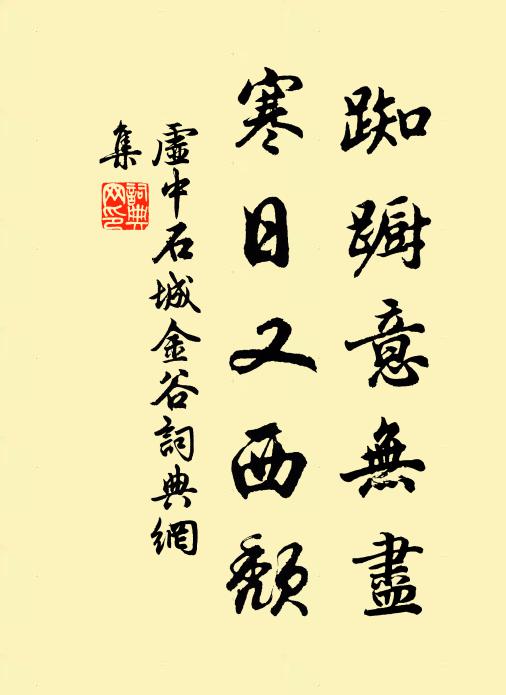 踟蹰意無盡
寒日又西頹
虛中石城金谷詞典網
集
詞典
网印